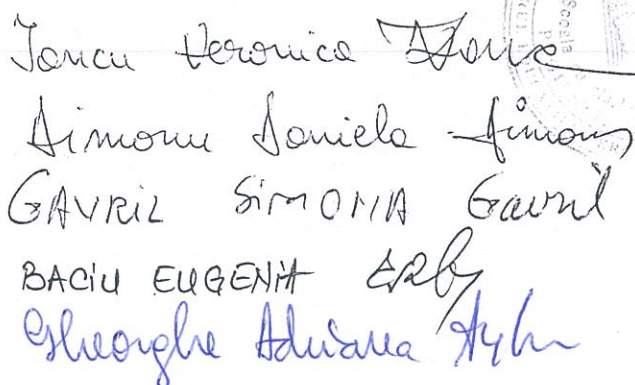 Școala
Iancu Veronica
Simonu Daniela Simonu
GAVRIL SIMONA Gavril
BACIU EUGENIA
Gheorghe Adriana